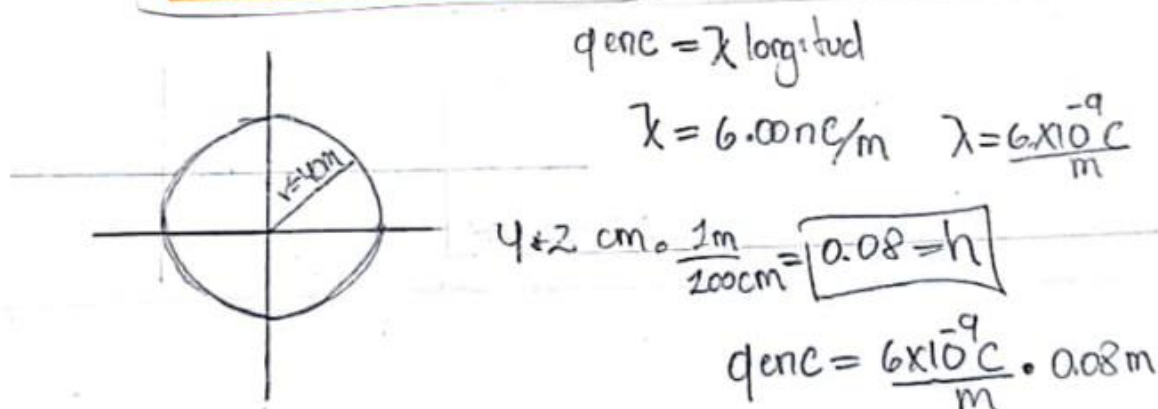 qenc = λ longitud
λ = 6.00 nC/m λ = 6x10^-9 C / m
r=4cm
4*2 cm • 1m / 100cm = 0.08 = h
qenc = 6x10^-9 C / m • 0.08m